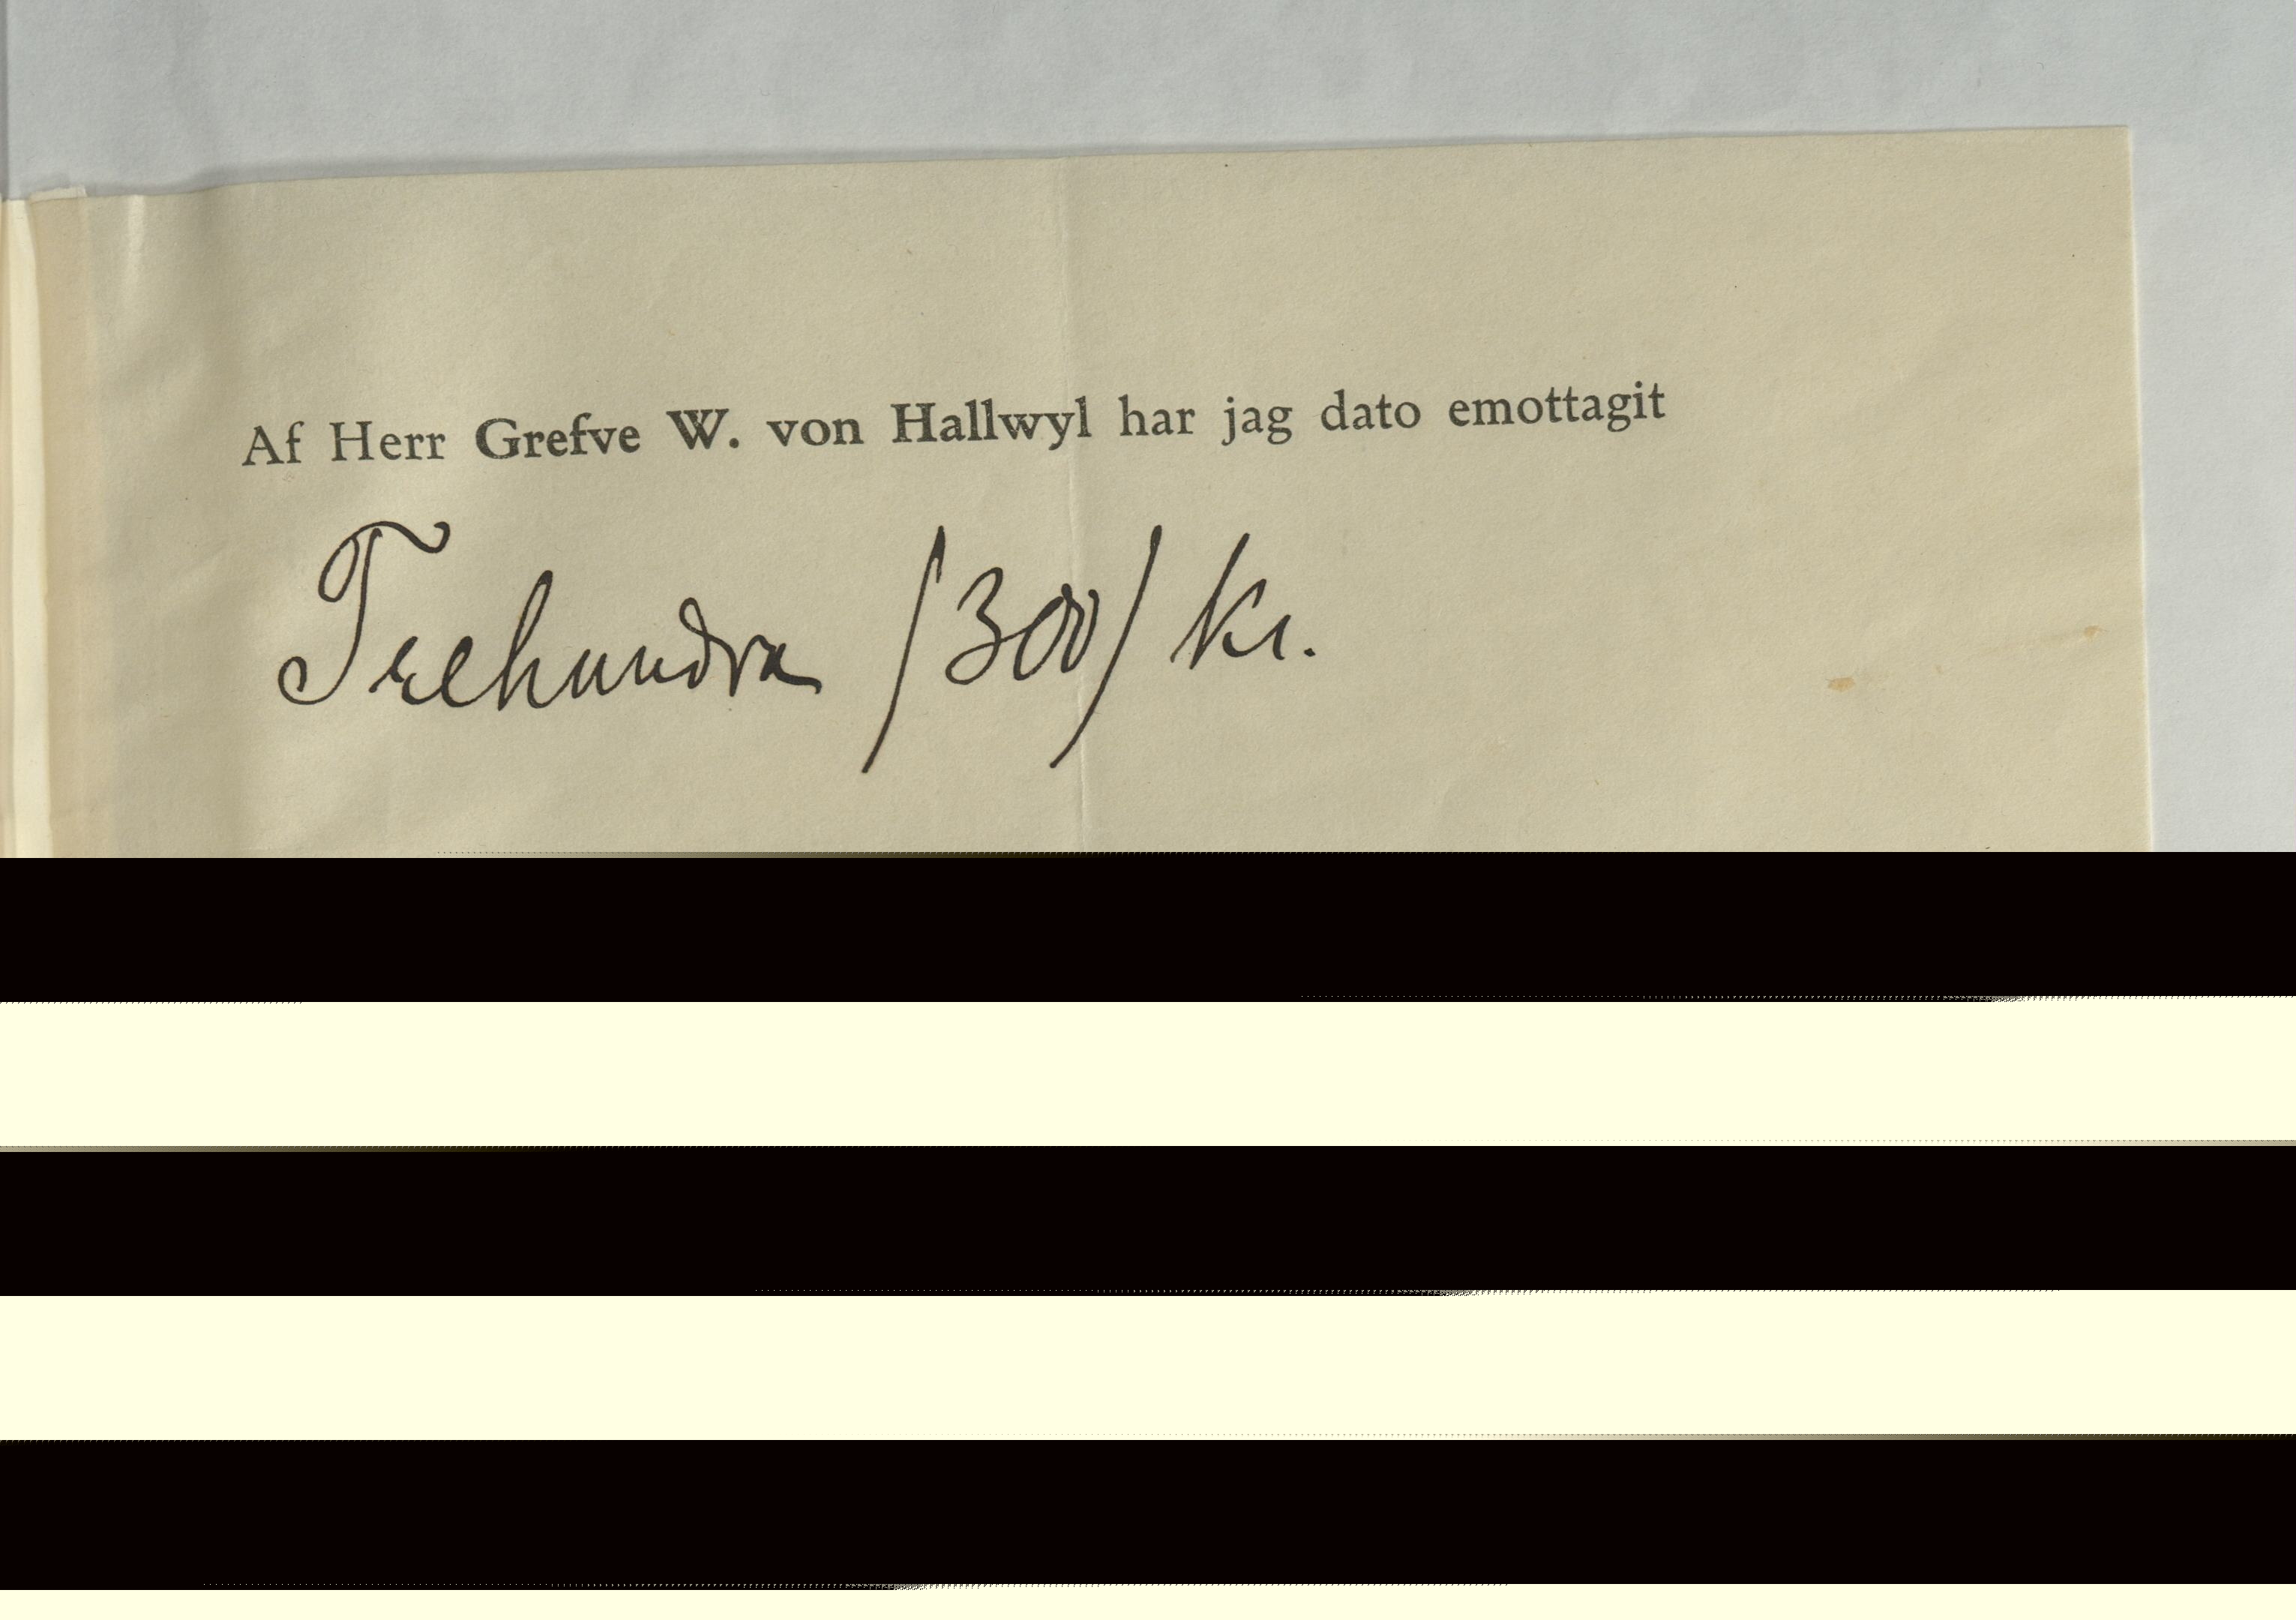 Af Herr Grefve W. von Hallwyl har jag dato emottagit
Trehundra /300/ kr.